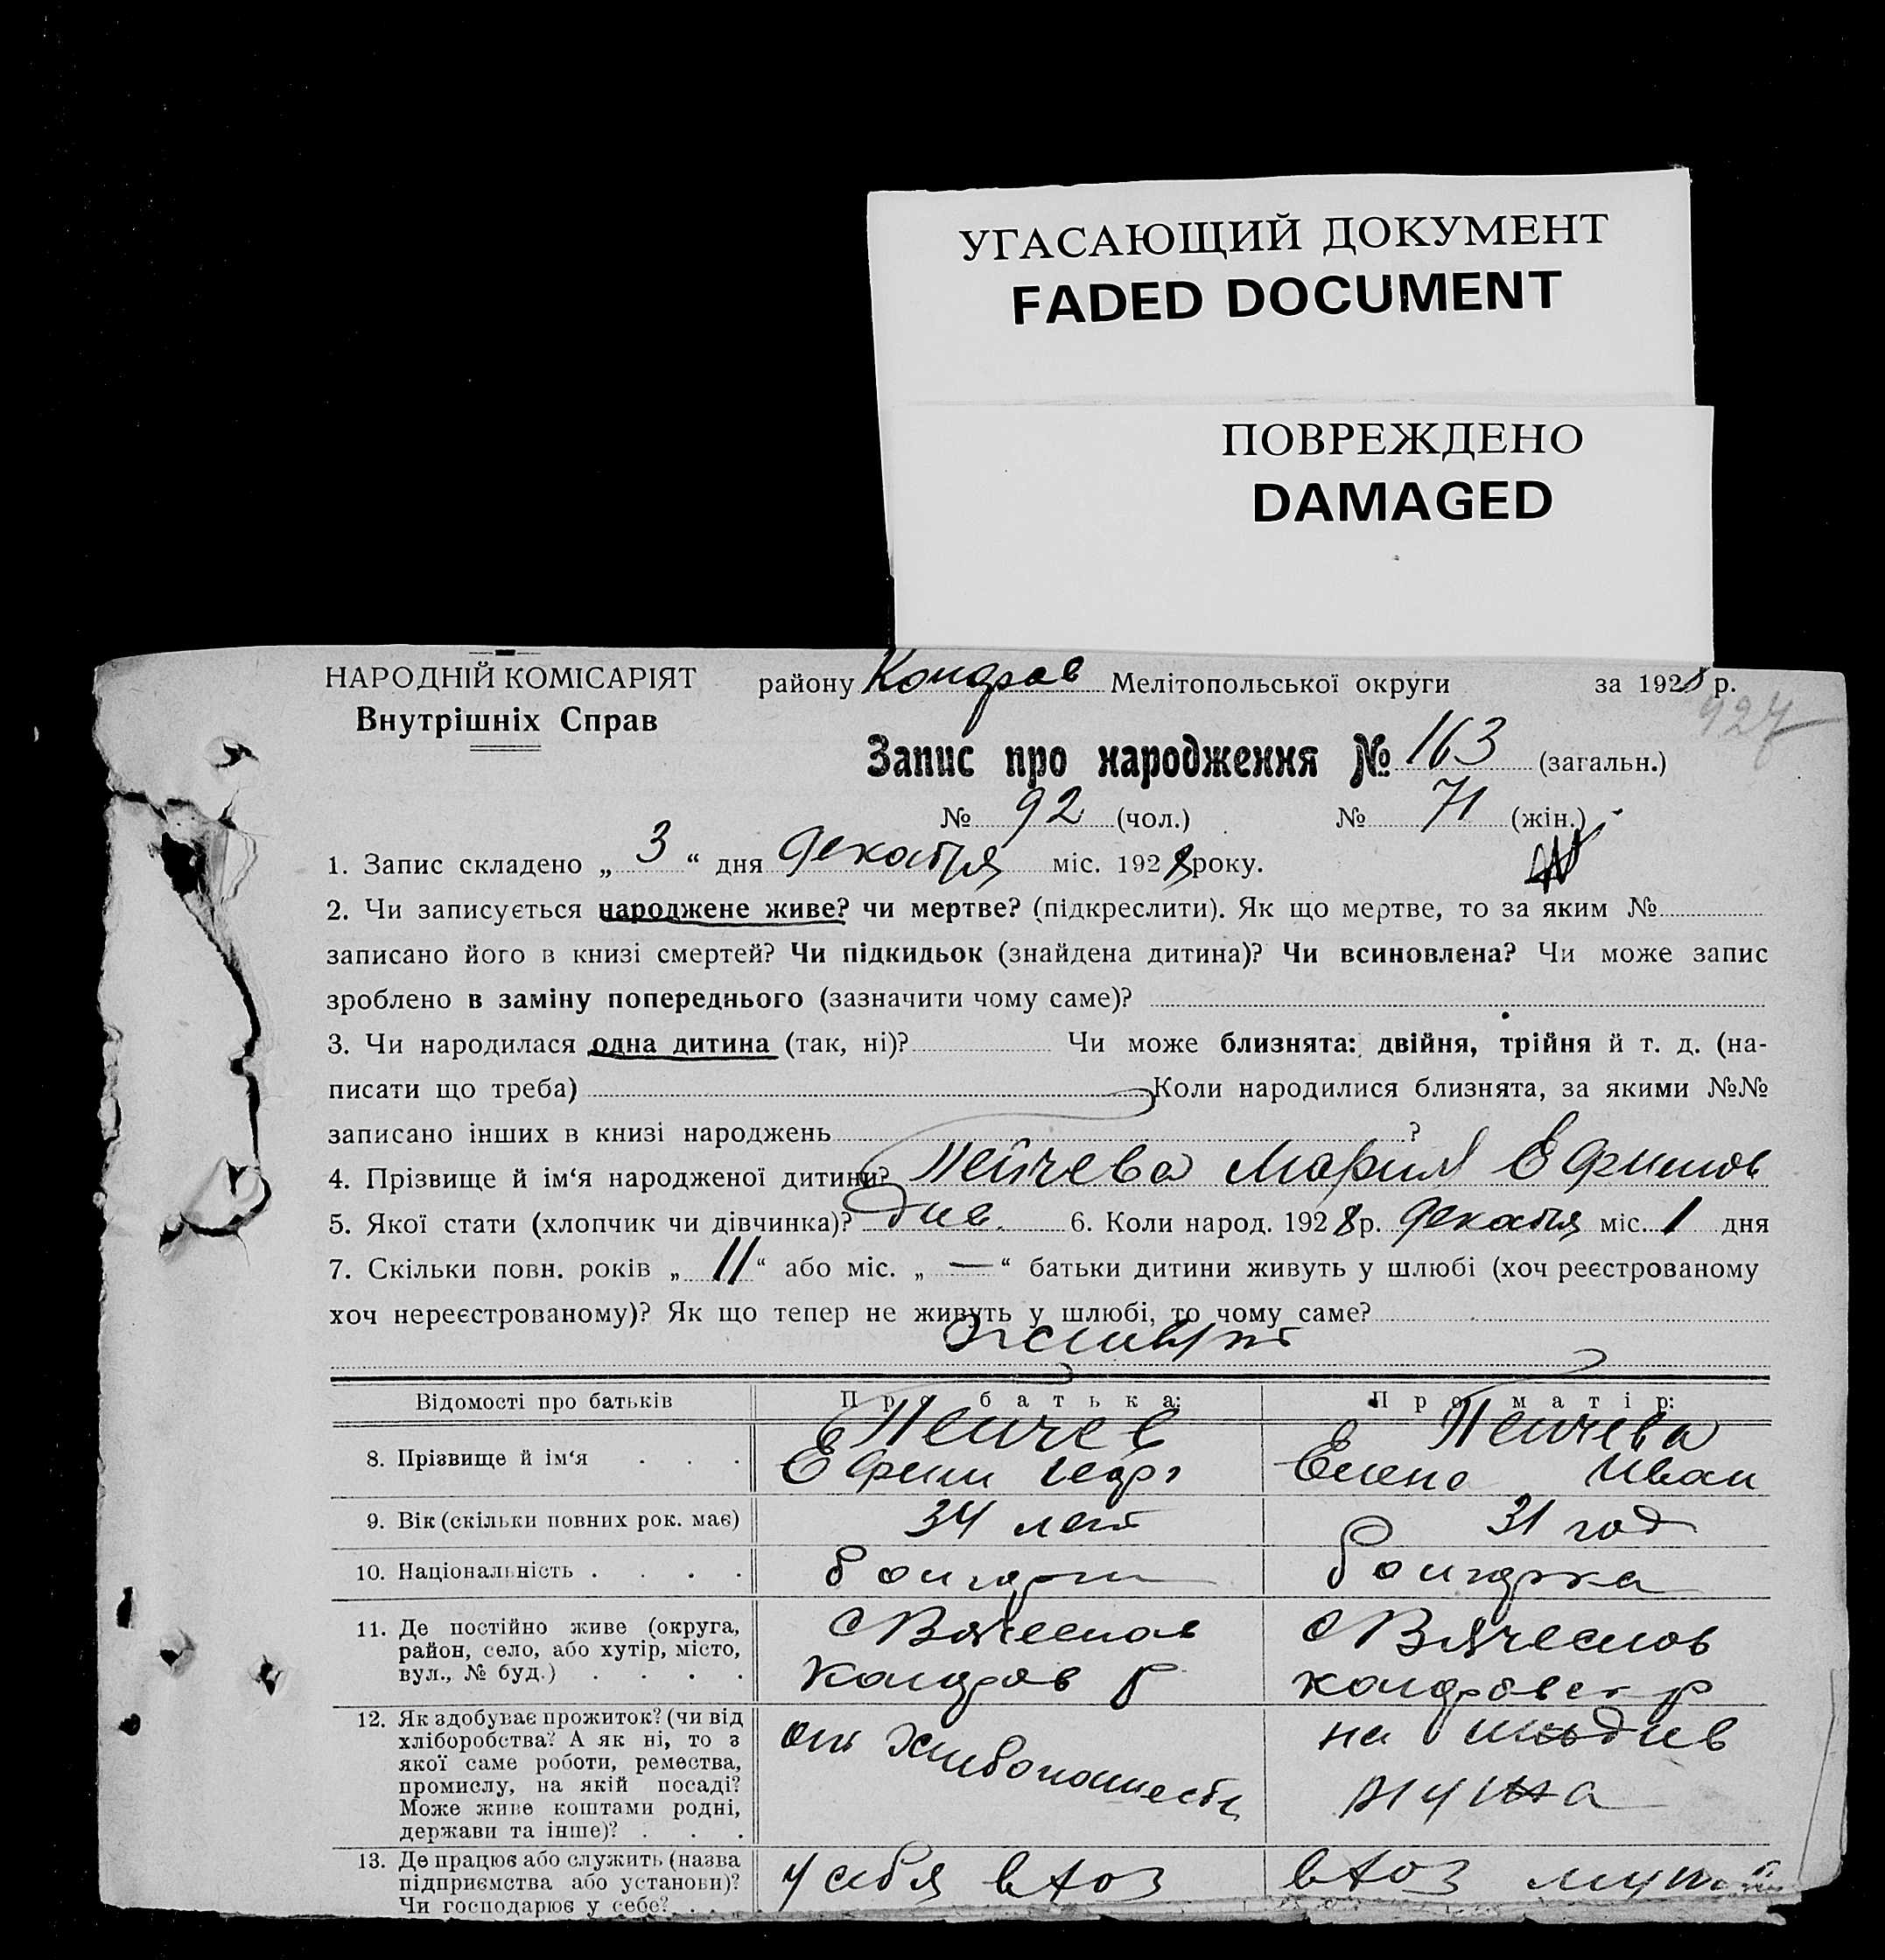 УГАСАЮЩИЙ ДОКУМЕНТ
FADED DOCUMENT
ПОВРЕЖДЕНО
DAMAGED
НАРОДНІЙ КОМІСАРІЯТ
Внутрішніх Справ
району Кондров Мелітопольської округи за 1928 р.
927
Запис про народження № 163 (загальн.)
№ 92 (чол.) № 71 (жін.)
1. Запис складено „ 3 “ дня Декабря міс. 1928 року.
2. Чи записується народжене живе? чи мертве? (підкреслити). Як що мертве, то за яким №
записано його в книзі смертей? Чи підкидьок (знайдена дитина)? Чи всиновлена? Чи може запис
зроблено в заміну попереднього (зазначити чому саме)?
3. Чи народилася одна дитина (так, ні)? Чи може близнята: двійня, трійня й т. д. (на-
писати що треба) Коли народилися близнята, за якими №№
записано інших в книзі народжень ?
4. Прізвище й ім‘я народженої дитини? Пейчева Мария Ефимов
5. Якої стати (хлопчик чи дівчинка)? див. 6. Коли народ. 1928 р. Декабря міс. 1 дня
7. Скільки повн. років „ 11 “ або міс. „ — “ батьки дитини живуть у шлюбі (хоч реєстрованому
хоч нереєстрованому)? Як що тепер не живуть у шлюбі, то чому саме?
живут
Відомості про батьків Про батька: Про матір:
8. Прізвище й ім‘я . . . Пейчев Пейчева
Ефим Елена Иван
9. Вік (скільки повних рок. має) 34 лет 31 год
10. Національність . . . . болгарин болгарка
11. Де постійно живе (округа, район, село, або хутір, місто, вул., № буд.) . . . . с Вячеслов с Вячеслов
Кондров р кондровск р
12. Як здобуває прожиток? (чи від хліборобства? А як ні, то з якої саме роботи, ремества, промислу, на якій посаді? Може живе коштами родні, держави та інше)? . . . от на иждив
мужа
13. Де працює або служить (назва підприємства або установи)? Чи господарює у себе? . . . у себя в хоз в хоз мужа